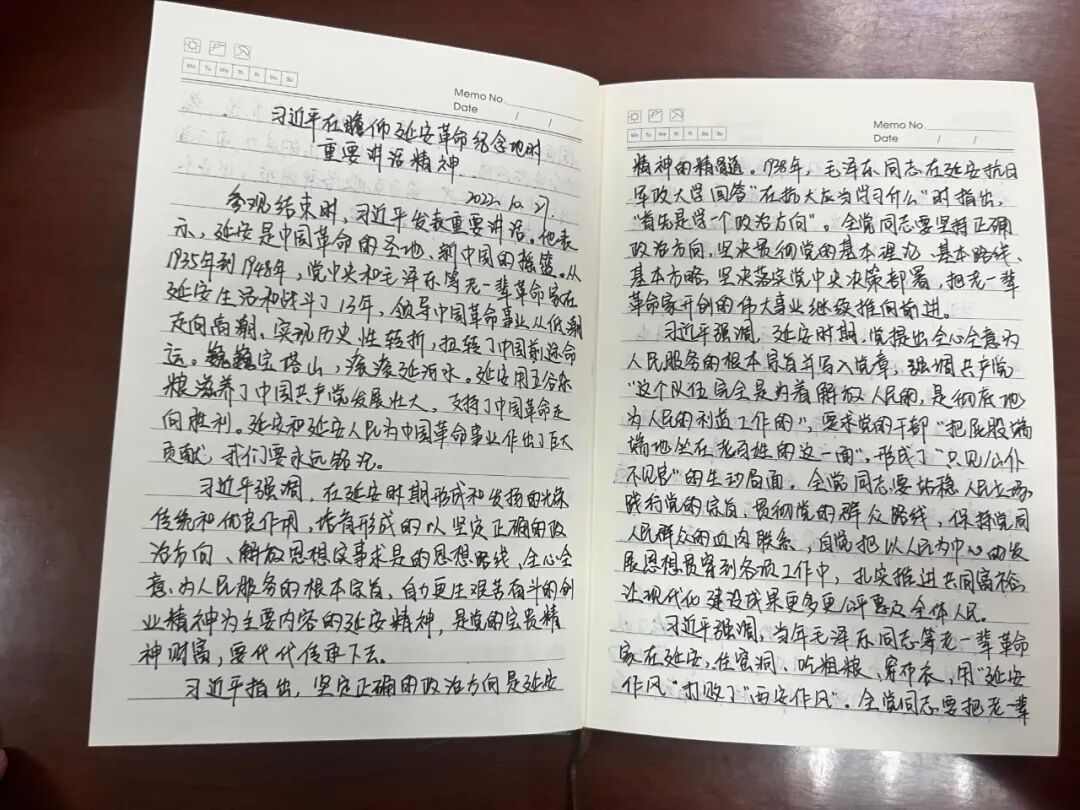 Mo Tu We Th Fr Sa Su
Memo No.
Date / /
习近平在瞻仰延安革命纪念地时
重要讲话精神.
2022.10.27.
参观结束时,习近平发表重要讲话。他表
示,延安是中国革命的圣地、新中国的摇篮。从
1935年到1948年,党中央和毛泽东等老一辈革命家在
延安生活和战斗了13年,领导中国革命事业从低潮
走向高潮、实现历史性转折,扭转了中国前途命
运。巍巍宝塔山,滚滚延河水。延安用五谷杂
粮滋养了中国共产党发展壮大,支持了中国革命走
向胜利。延安和延安人民为中国革命事业作出了巨大
贡献,我们要永远铭记。
习近平强调,在延安时期形成和发扬的光荣
传统和优良作用,培育形成的以坚定正确的政
治方向、解放思想实事求是的思想路线、全心全
意为人民服务的根本宗旨,自力更生艰苦奋斗的创
业精神为主要内容的延安精神,是党的宝贵精
神财富,要代代传承下去。
习近平指出,坚定正确的政治方向是延安
Mo Tu We Th Fr Sa Su
Memo No.
Date / /
精神的精髓。1938年,毛泽东同志在延安抗日
军政大学回答“在抗大应当学习什么”时指出,
“首先是学一个政治方向”。全党同志要坚持正确
政治方向,坚决贯彻党的基本理论、基本路线、
基本方略,坚决落实党中央决策部署,把老一辈
革命家开创的伟大事业继续推向前进。
习近平强调,延安时期,党提出全心全意为
人民服务的根本宗旨并写入党章,强调共产党
“这个队伍完全是为着解放人民的,是彻底地
为人民的利益工作的”,要求党的干部“把屁股端
端地坐在老百姓的这一面”,形成了“只见公仆
不见官”的生动局面。全党同志要站稳人民立场,
践行党的宗旨,贯彻党的群众路线,保持党同
人民群众的血肉联系,自觉把以人民为中心的发
展思想贯穿到各项工作中,扎实推进共同富裕,
让现代化建设成果更多更公平惠及全体人民。
习近平强调,当年毛泽东同志等老一辈革命
家在延安,住窑洞、吃粗粮、穿布衣,用“延安
作风”打败了“西安作风”。全党同志要把老一辈